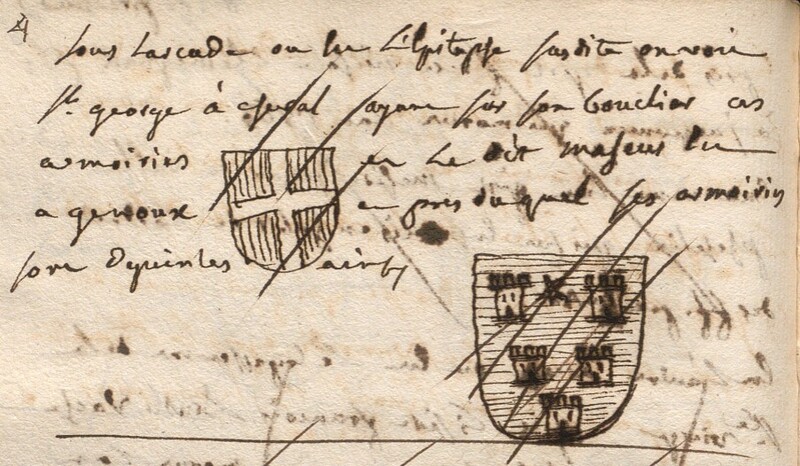 4
sous larcade ou lu L'Epitaphe susdite on voit
St. george à cheval ayant sur son bouclier ces
armoiries et le dit maheus lu
a genoux et pres duquel ses armoiries
sont depeintes ainsy